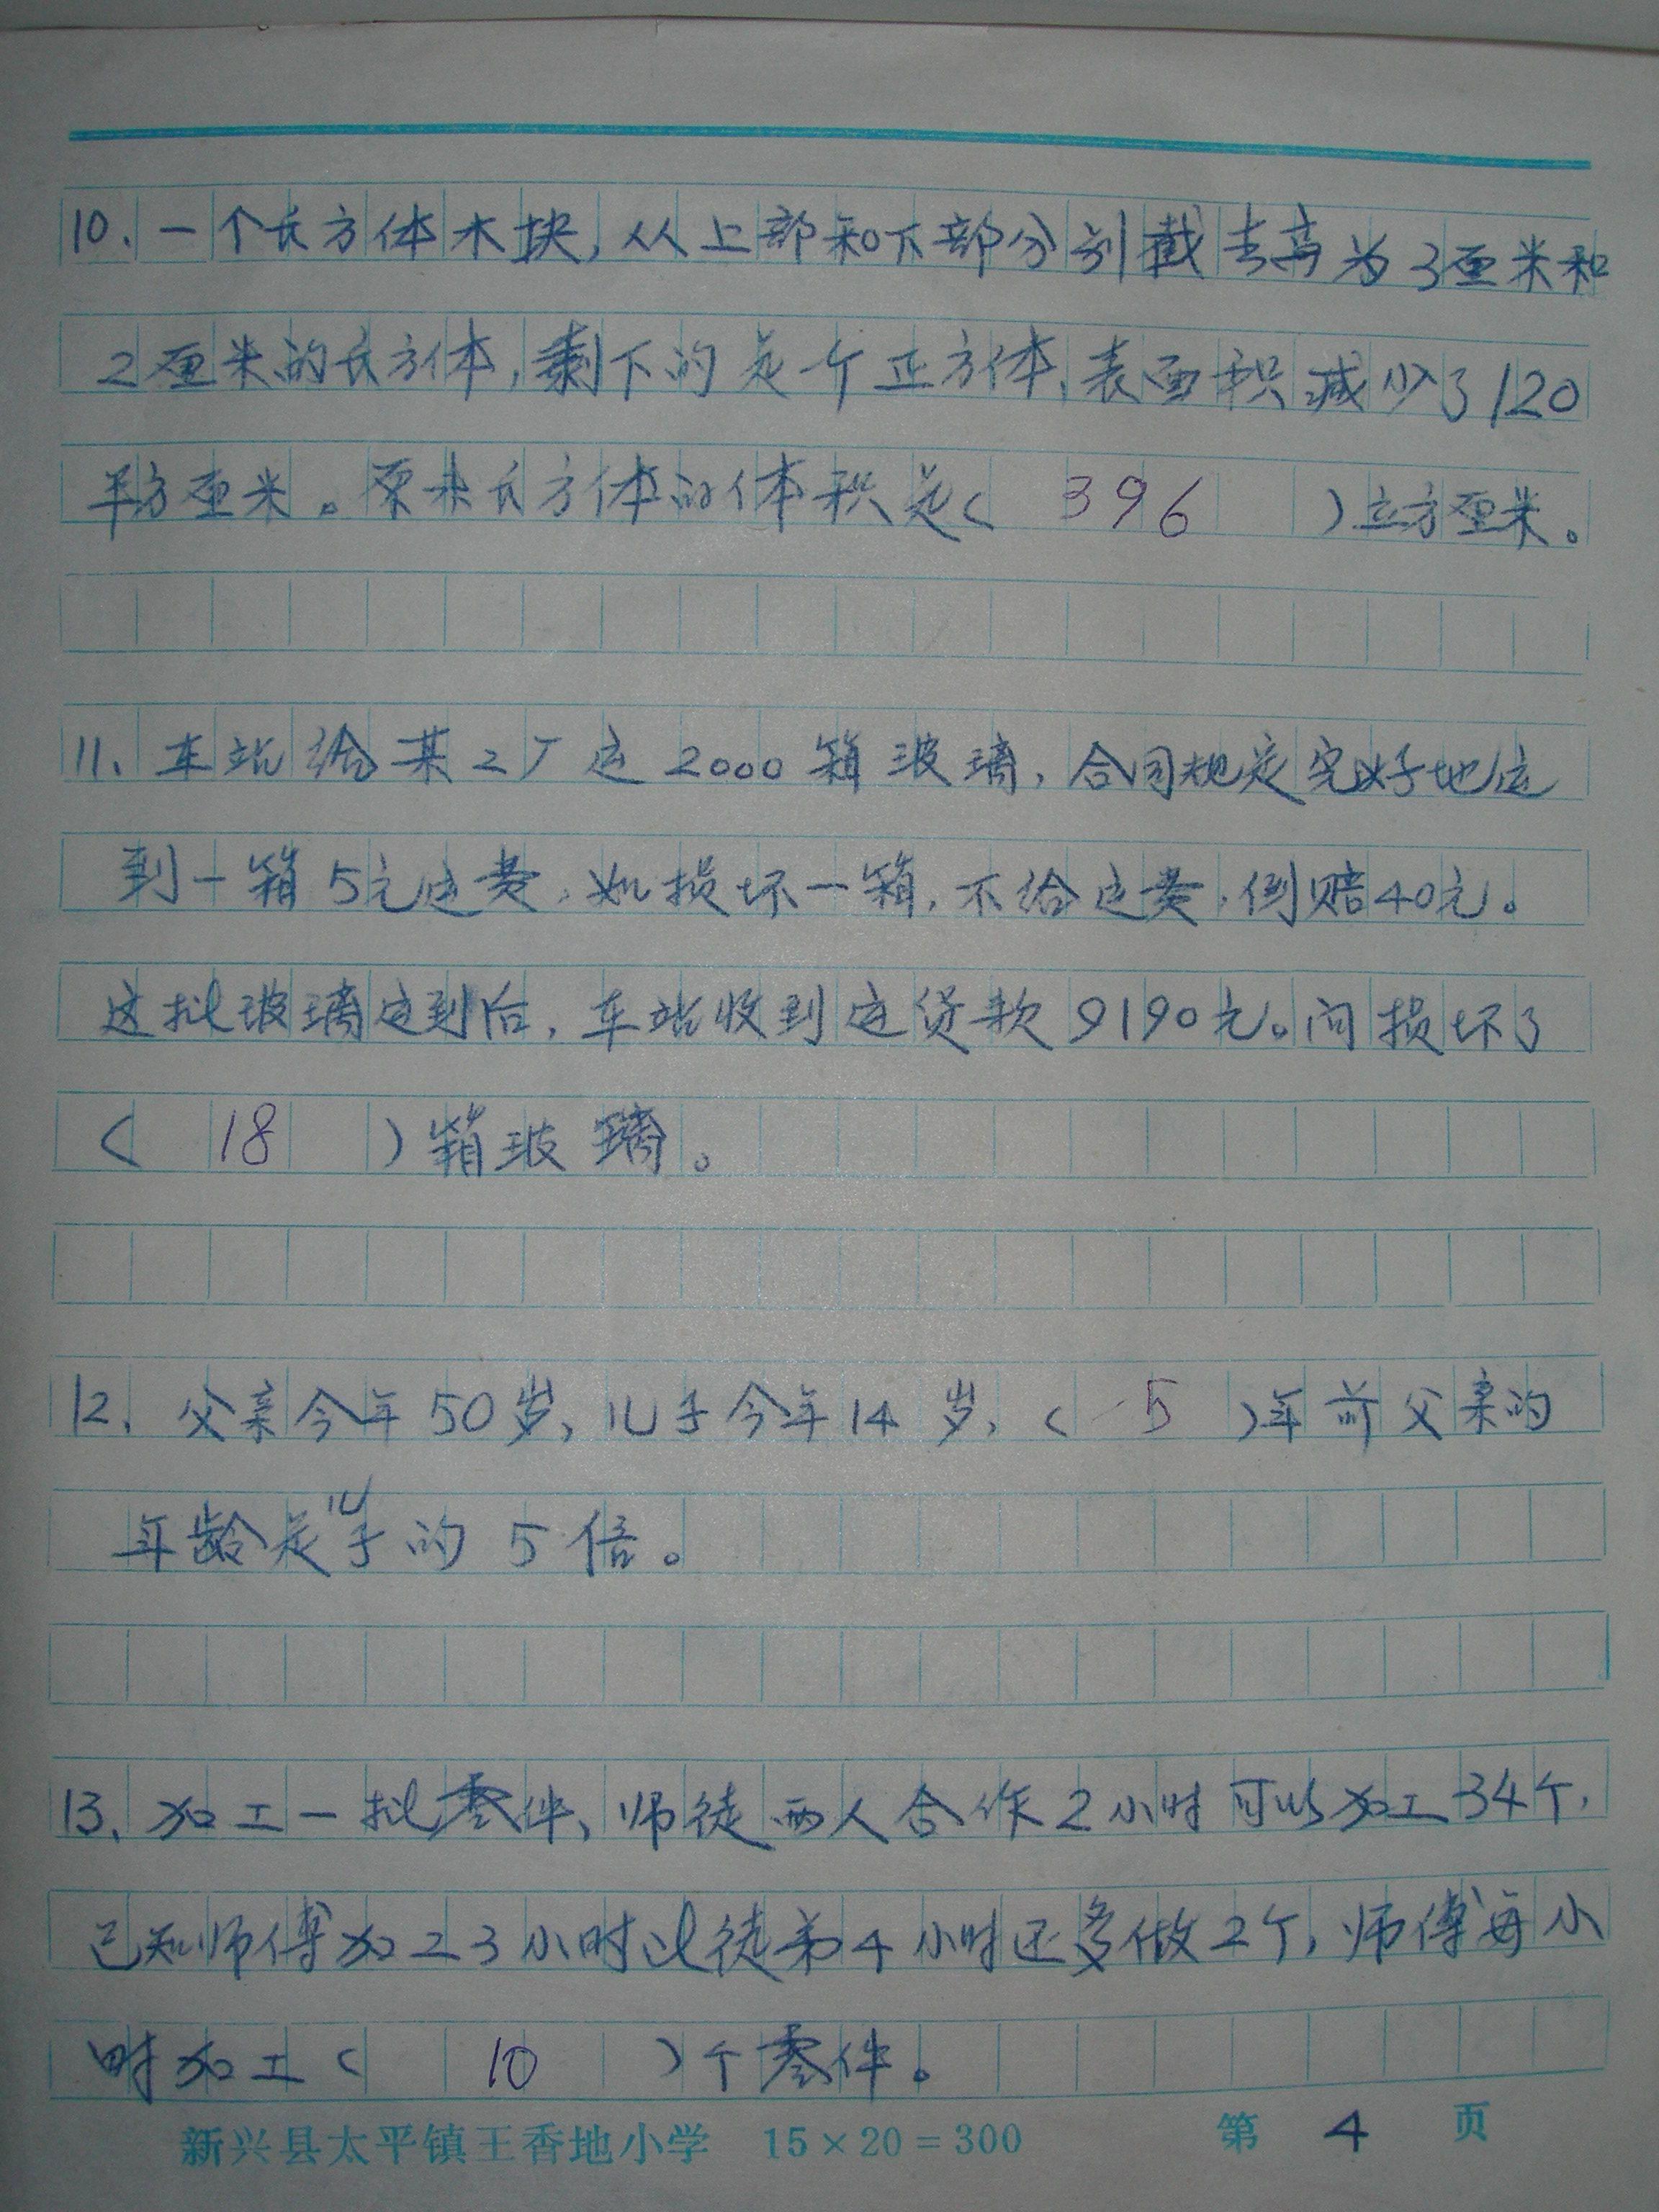 10、一个长方体木块,从上部和下部分别截去高为3厘米和
2厘米的长方体,剩下的是一个正方体,表面积减少了120
平方厘米。原来长方体的体积是( 396 )立方厘米。
11、车站给某工厂运2000箱玻璃,合同规定完好地运
到一箱5元运费,如损坏一箱,不给运费,倒赔40元。
这批玻璃运到后,车站收到运货款9190元。问损坏了
( 18 )箱玻璃。
12、父亲今年50岁,儿子今年14岁,( 5 )年前父亲的
年龄是儿子的5倍。
13、加工一批零件,师徒两人合作2小时可以加工34个,
已知师傅加工3小时比徒弟4小时还多做2个,师傅每小
时加工( 10 )个零件。
新兴县太平镇王香地小学 15×20=300 第 4 页